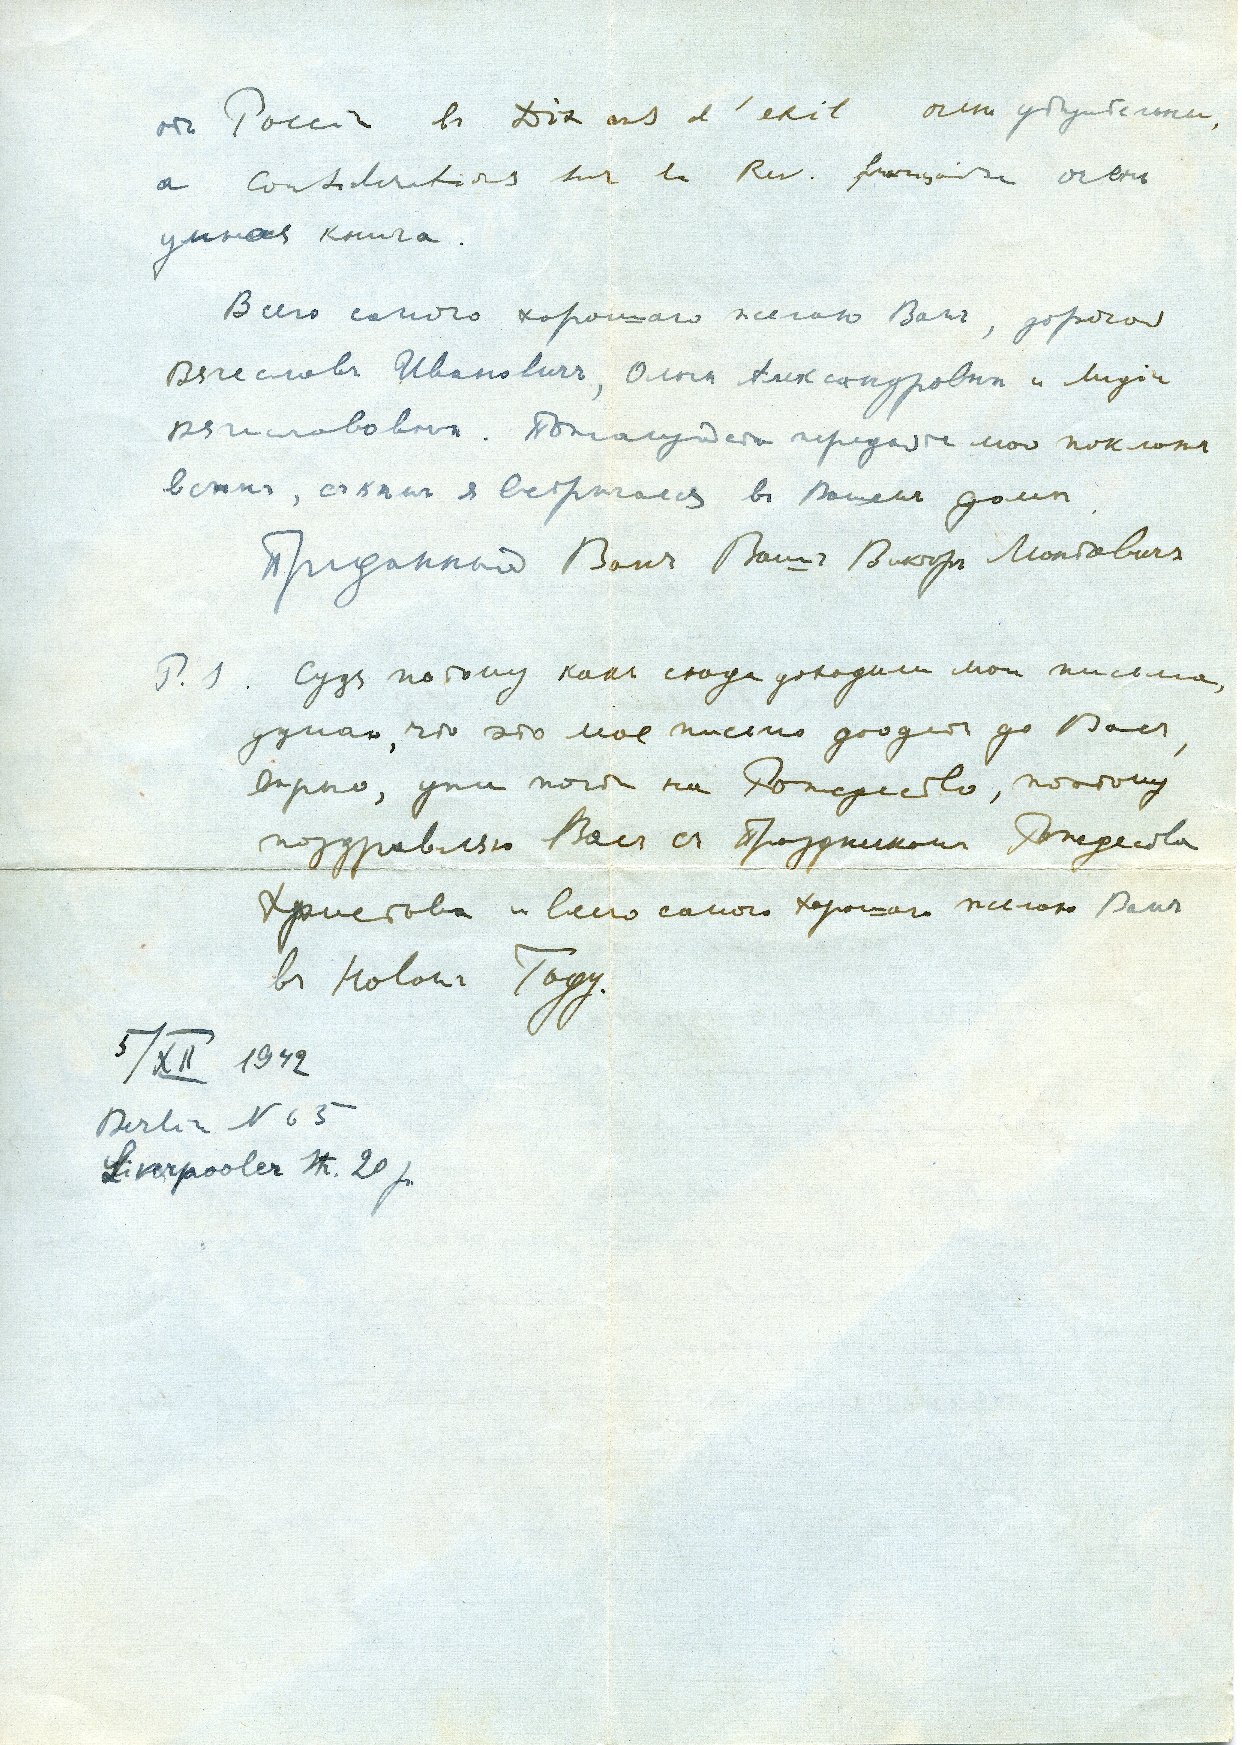 объ Россiи въ Dix ans d'exil очень убѣдительны,
a Considerations sur la Rev. française очень
умная книга.
Всего самого хорошаго желаю Вамъ, дорогой
Вячеславъ Ивановичъ, Ольгѣ Александровнѣ и Лидiи
Вячеславовнѣ. Пожалуйста передайте мой поклонъ
всѣмъ, съ кѣмъ я встрѣчался въ Вашемъ домѣ.
Преданный Вамъ Вашъ Викторъ Мантовичъ
P. S. Судя потому какъ сюда доходили мои письма,
думаю, что это мое письмо дойдетъ до Васъ,
вѣрно, уже почти на Рождество, поэтому
поздравляю Васъ съ Праздникомъ Рождества
Христова и всего самого хорошаго желаю Вамъ
въ Новомъ Году.
5/XII 1942
Berlin N 65
Liverpooler Str. 20